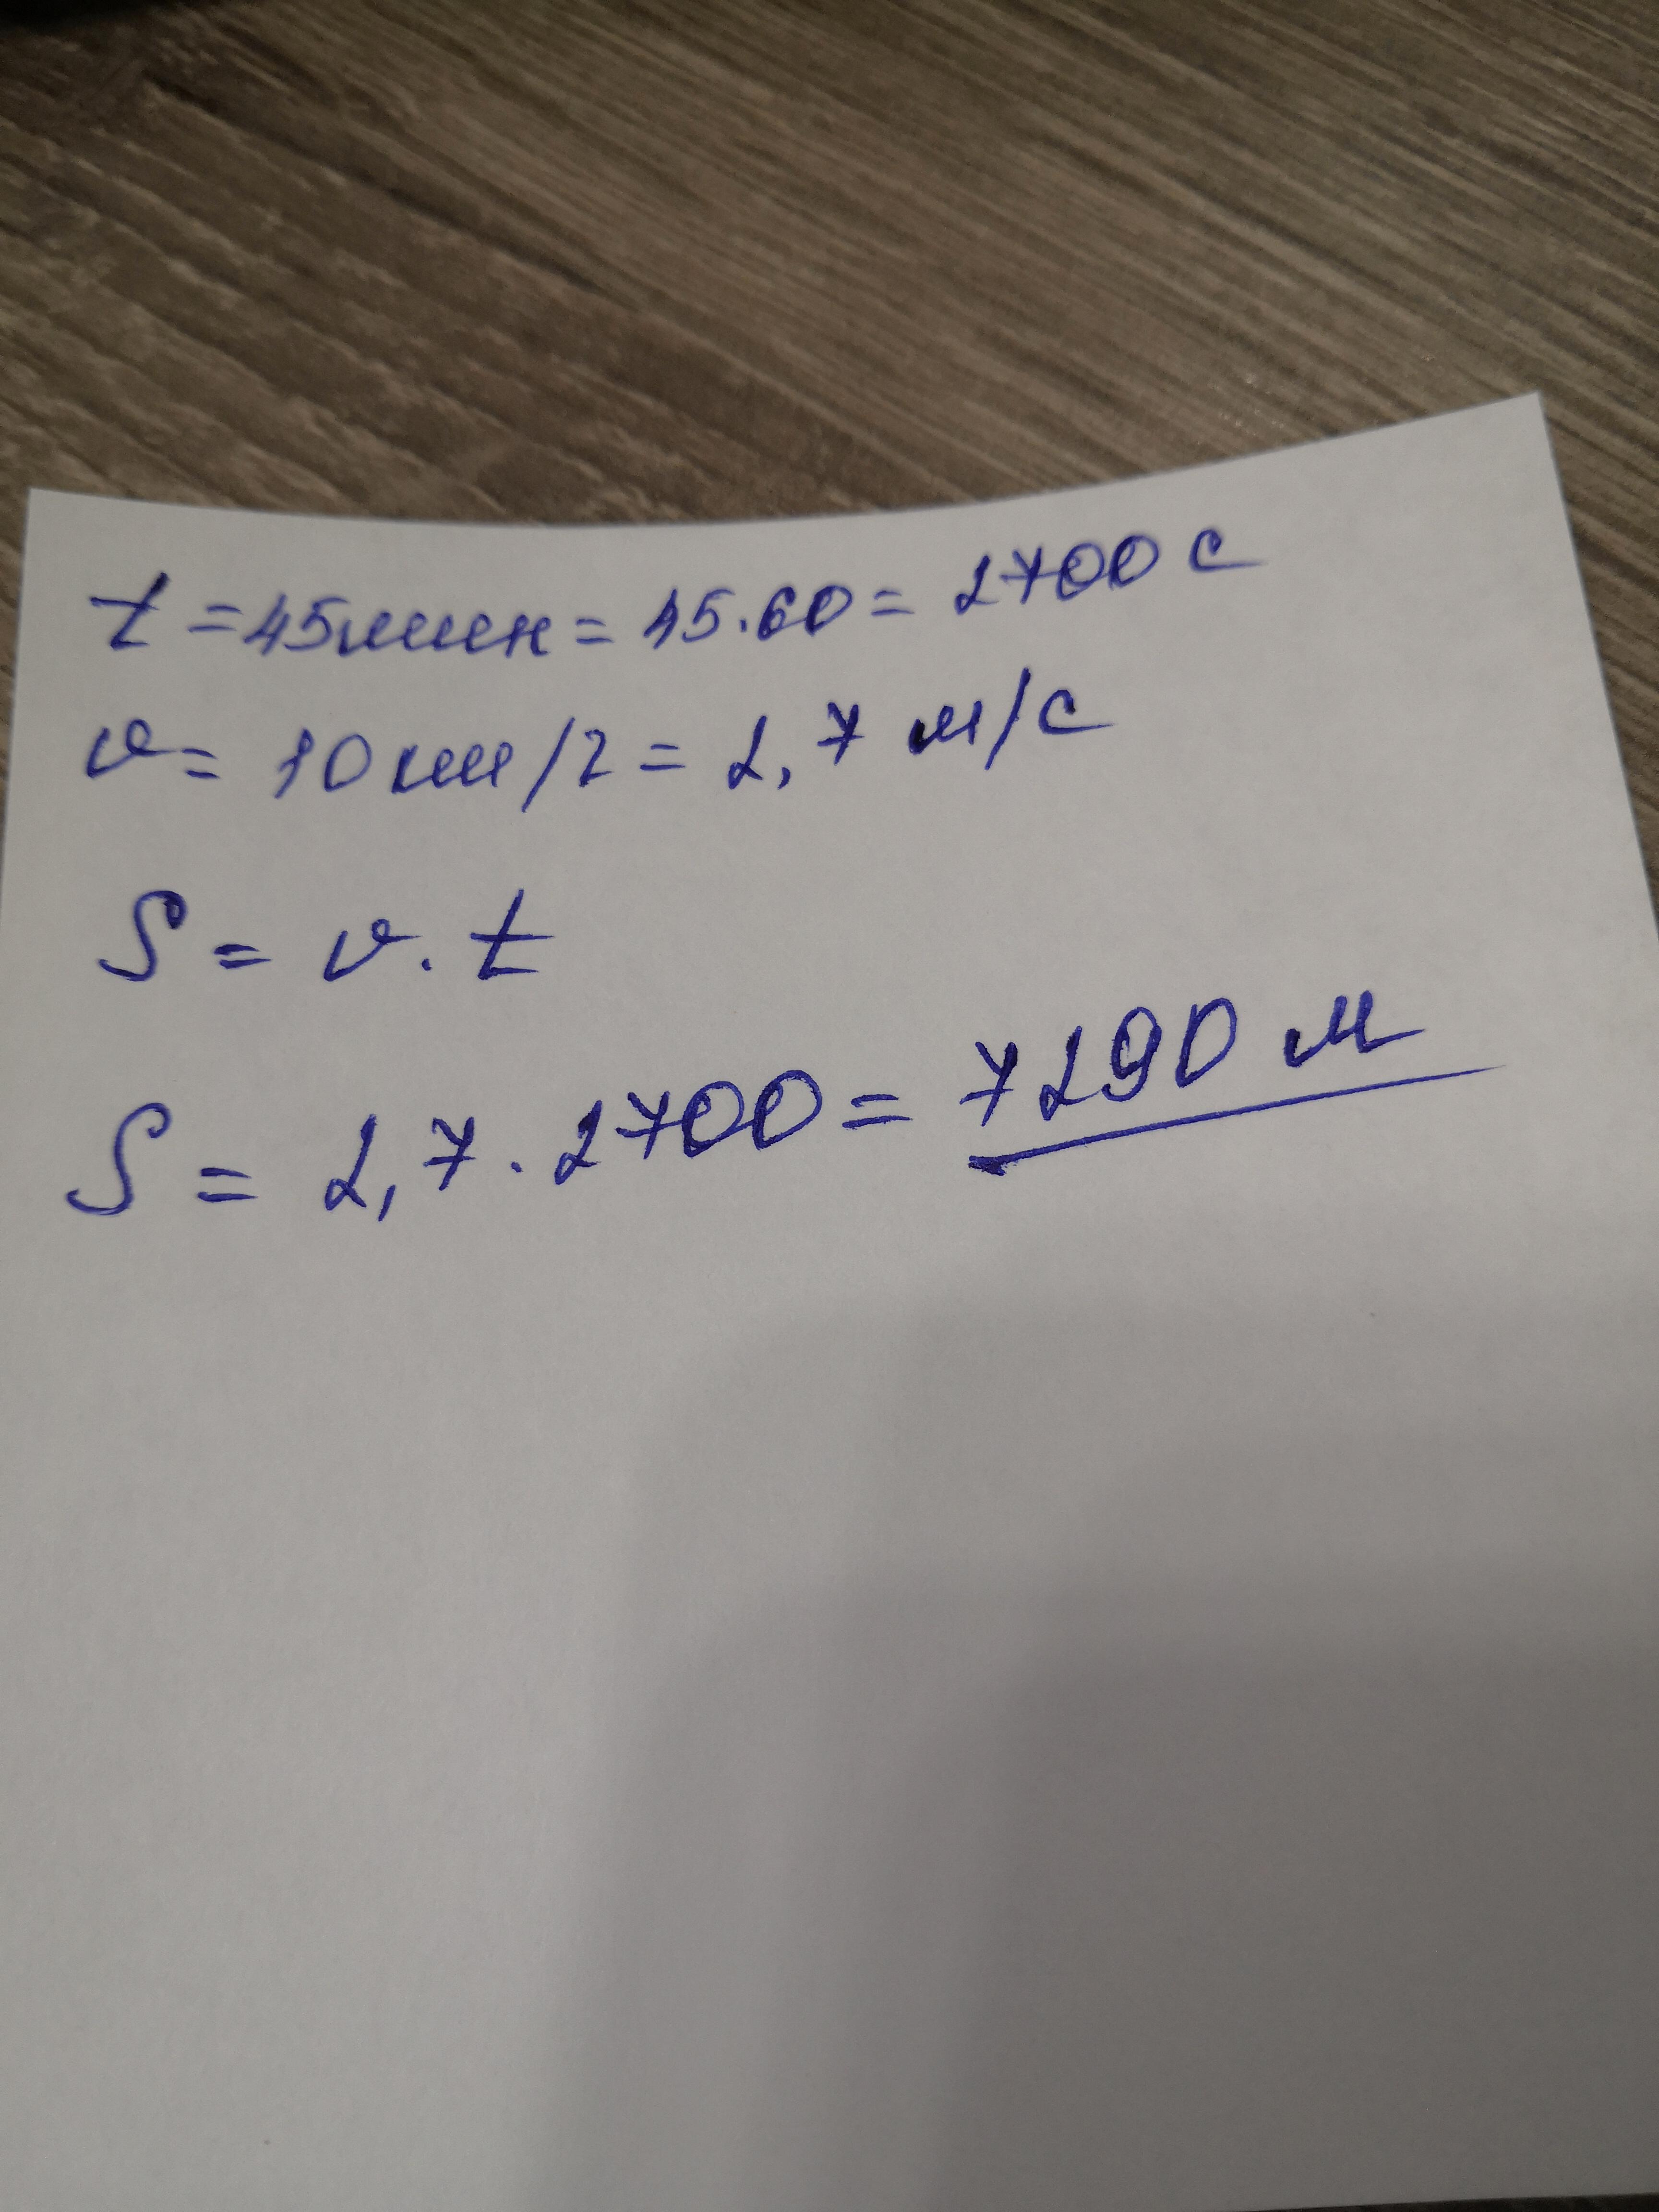 t = 45мин = 45.60 = 2700 с
v = 10 км/г = 2,7 м/с
S = v . t
S = 2,7 . 2700 = 7290 м